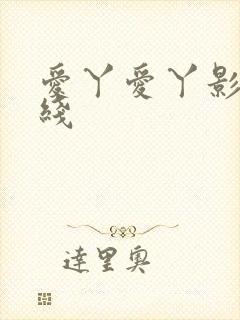 愛丫愛丫影
綫
達里奧